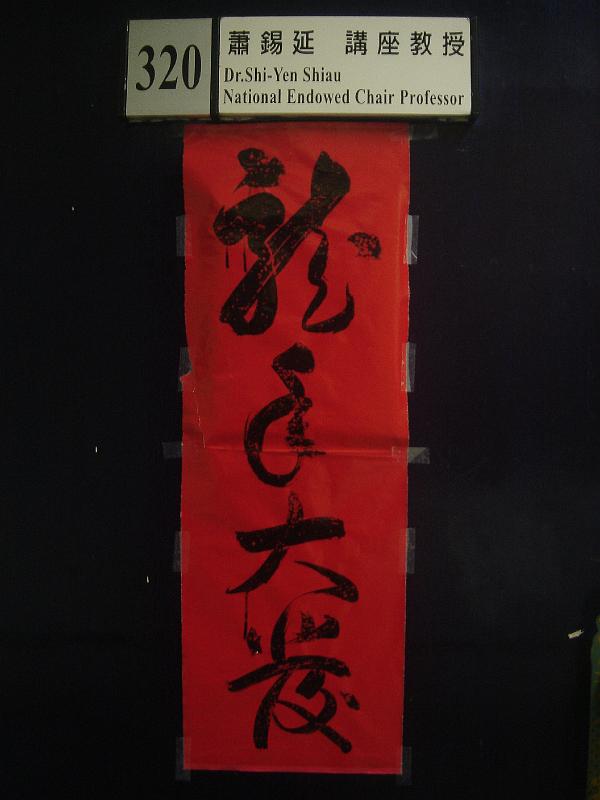 320
蕭錫延 講座教授
Dr.Shi-Yen Shiau
National Endowed Chair Professor
龍年大發